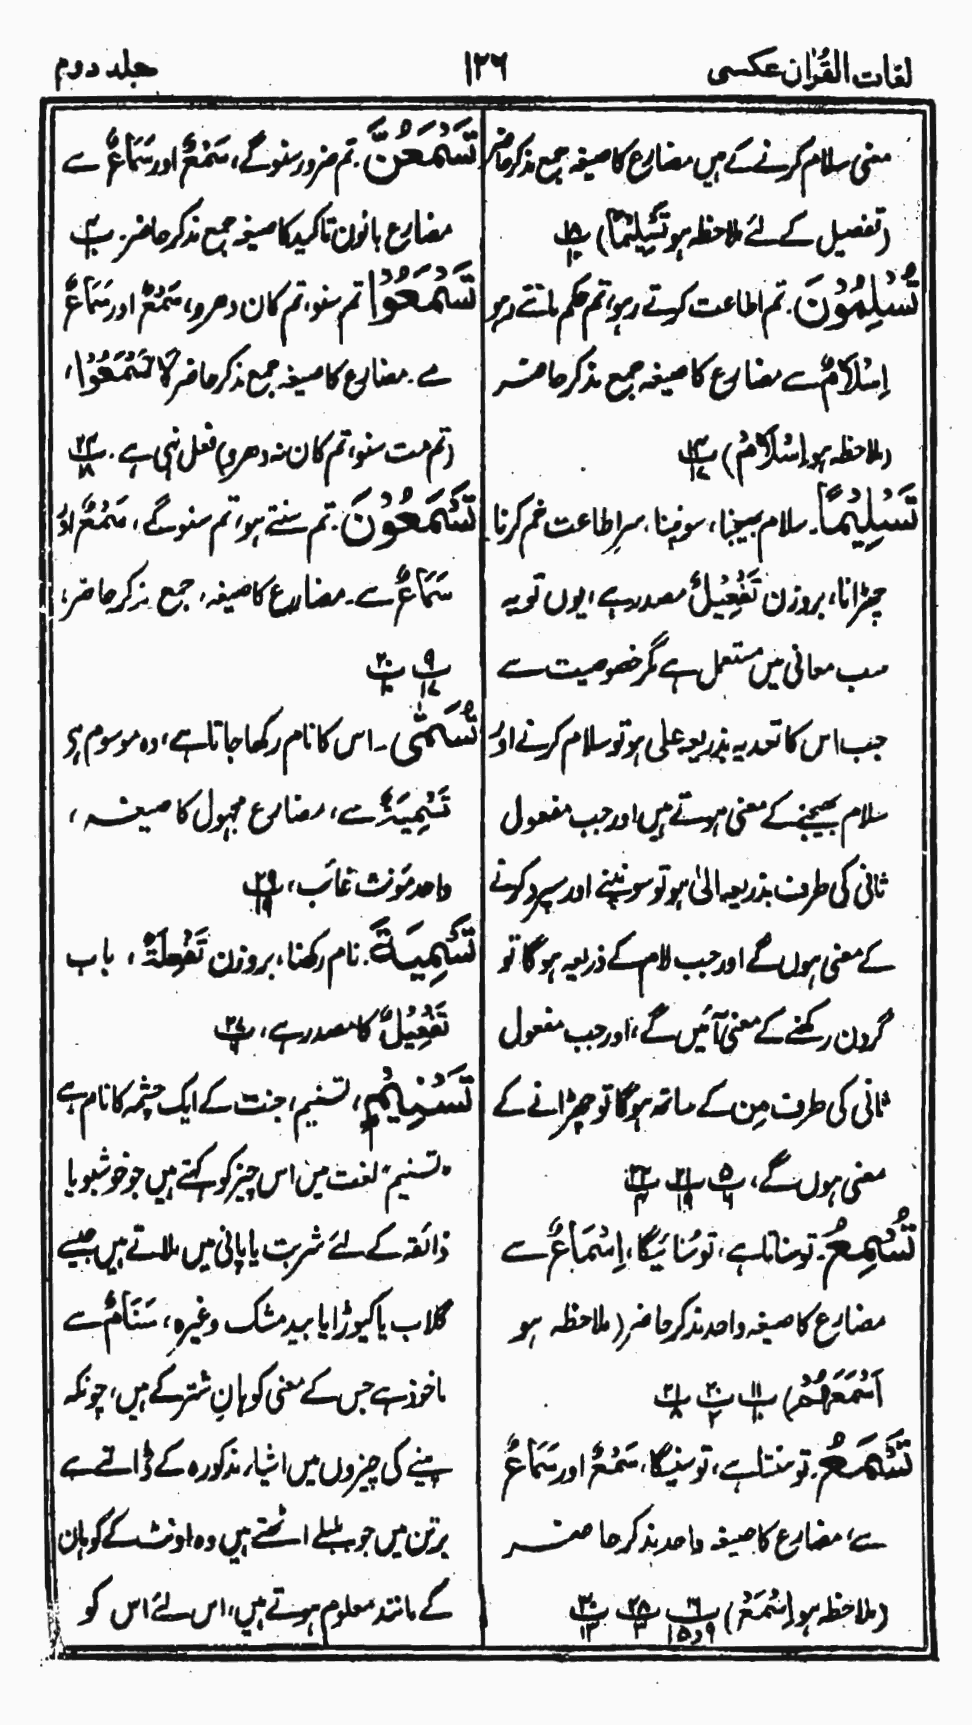 لغات القرآن عکسی
۱۲۶
جلد دوم
معنی سلام کرنے کے ہیں مضارع کا صیغہ جمع مذکر حاضر
(تفصیل کے لئے ملاحظہ ہو تَسْلِیْمًا)
تُسْلِمُوْنَ۔ تم اطاعت کرتے رہو، تم حکم مانتے رہو
اِسْلَامٌ سے مضارع کا صیغہ جمع مذکر حاضر
(ملاحظہ ہو اِسْلَامٌ)
تَسْلِیْمًا۔ سلام بھیجنا، سونپنا، سرِ اطاعت خم کرنا
چھڑانا، بروزن تَفْعِیْلٌ مصدر ہے، یوں تو یہ
سب معانی میں مستعمل ہے مگر خصوصیت سے
جب اس کا تعدیہ بذریعہ علٰی ہو تو سلام کرنے اور
سلام بھیجنے کے معنی ہوتے ہیں اور جب مفعول
ثانی کی طرف بذریعہ الیٰ ہو تو سونپنے اور سپرد کرنے
کے معنی ہوں گے اور جب لام کے ذریعہ ہوگا تو
گردن رکھنے کے معنی آئیں گے، اور جب مفعول
ثانی کی طرف مِن کے ساتھ ہوگا تو چھڑانے کے
معنی ہوں گے، ۵/۶ ۲۱/۱۹ ۲۲/۴
تُسْمِعُ۔ تو سناتا ہے، تو سُنائیگا، اِسْمَاعٌ سے
مضارع کا صیغہ واحد مذکر حاضر (ملاحظہ ہو
اَسْمَعَهُمْ) ۱۱/۱۰ ۲۰/۲ ۲۱/۸
تَسْمَعُ۔ تو سنتا ہے، تو سنیگا، سَمْعٌ اور سَمَاعٌ
سے، مضارع کا صیغہ واحد مذکر حاضر
(ملاحظہ ہو اِسْمَعْ) ۱۶/۹و۱۵ ۲۸/۳ ۳۰/۱۳
تَسْمَعُنَّ۔ تم ضرور سنو گے، سَمْعٌ اور سَمَاعٌ سے
مضارع بانون تاکید کا صیغہ جمع مذکر حاضر۔
تَسْمَعُوْا تم سنو، تم کان دھرو، سَمْعٌ اور سَمَاعٌ
سے۔ مضارع کا صیغہ جمع مذکر حاضر لَا تَسْمَعُوْا،
(تم مت سنو، تم کان نہ دھرو) فعل نہی ہے۔ ۲۴/۱۸
تَسْمَعُوْنَ۔ تم سنتے ہو، تم سنو گے، سَمْعٌ اور
سَمَاعٌ سے۔ مضارع کا صیغہ، جمع مذکر حاضر،
۹/۱۷ ۲۰/۱۰
تُسَمّٰی۔ اس کا نام رکھا جاتا ہے، وہ موسوم ہے
تَسْمِیَۃٌ سے، مضارع مجہول کا صیغہ،
واحد مؤنث غائب، ۲۹/۱۹
تَسْمِیَۃً۔ نام رکھنا، بروزن تَفْعِلَۃٌ، باب
تَفْعِیْلٌ کا مصدر ہے، ۲۷/۶
تَسْنِیْمٍ، تسنیم، جنت کے ایک چشمہ کا نام ہے
"تسنیم" لغت میں اس چیز کو کہتے ہیں جو خوشبو یا
ذائقہ کے لئے شربت یا پانی میں ملاتے ہیں جیسے
گلاب یا کیوڑا یا بید مشک وغیرہ، سَنَامٌ سے
ماخوذ ہے جس کے معنی کوہانِ شتر کے ہیں، چونکہ
پینے کی چیزوں میں اشیاء مذکورہ کے ڈالتے سے
برتن میں جو بلبلے اٹھتے ہیں وہ اونٹ کے کوہان
کے مانند معلوم ہوتے ہیں، اس لئے اس کو